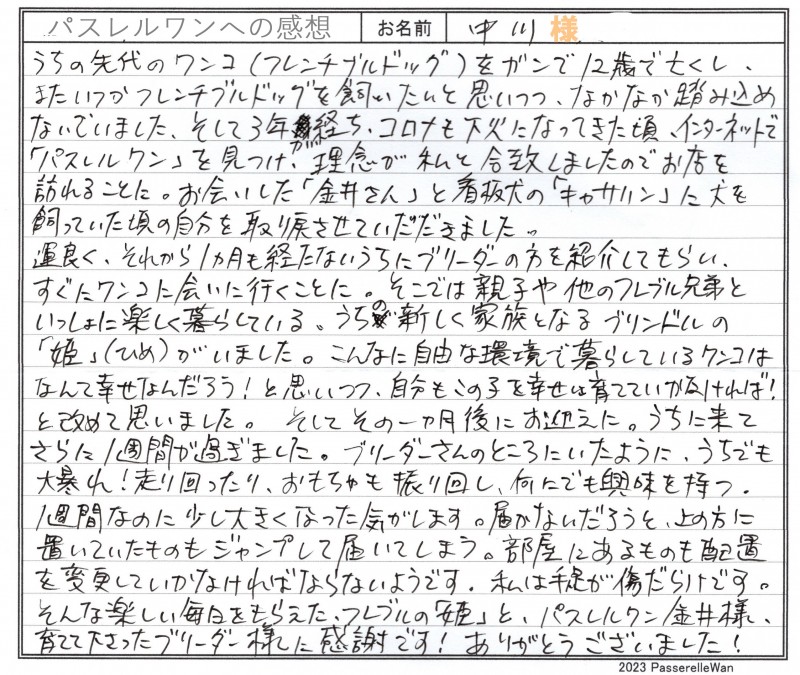 パスレルワンへの感想 お名前 中川 様
うちの先代のワンコ(フレンチブルドッグ)をガンで12歳で亡くし、
またいつかフレンチブルドッグを飼いたいと思いつつ、なかなか踏み込め
ないでいました、そして3年が経ち、コロナも下火になってきた頃、インターネットで
「パスレルワン」を見つけ、理念が私と合致しましたのでお店を
訪れることに。お会いした「金井さん」と看板犬の「キャサリン」に犬を
飼っていた頃の自分を取り戻させていだだきました。
運良く、それから1カ月も経たないうちにブリーダーの方を紹介してもらい、
すぐにワンコに会いに行くことに。そこでは親子や他のフレブル兄弟と
いっしょに楽しく暮らしている。うちの新しく家族となるブリンドルの
「姫」(ひめ)がいました。こんなに自由な環境で暮らしているワンコは
なんて幸せなんだろう!と思いつつ、自分もこの子を幸せに育てていかなければ!
と改めて思いました。 そしてその一カ月後にお迎えた。うちに来て
さらに1週間が過ぎました。ブリーダーさんのところにいたように、うちでも
大暴れ!走り回ったり、おもちゃも振り回し、何にでも興味を持つ。
1週間なのに少し大きくなった気がします。届かないだろうと、上の方に
置いていたものもジャンプして届いてしまう。部屋にあるものも配置
を変更していかなければならないようです。私は手足が傷だらけです。
そんな楽しい毎日をもらえた、フレブルの「姫」と、パスレルワン金井様、
育てて下さったブリーダー様に感謝です!ありがとうございました!
2023 PasserelleWan